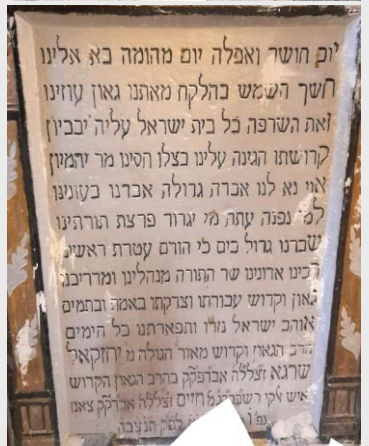 יום חושך ואפלה יום מהומה בא אלינו
חשך השמש בהלקח מאתנו גאון עוזינו
זאת השרפה כל בית ישראל עליה יבכיון
קדושתו הגינה עלינו בצלו חסינו מר יהמיון
אוי נא לנו אבדה גדולה אבדנו בעונינו
למי נפנה עתה מי יגדור פרצת תורתינו
שברנו גדול כים כי הורם עטרת ראשינו
רבינו אדונינו שר התורה מנהלינו ומדריכנו
גאון וקדוש עבודתו וצדקתו באמת ובתמים
אוהב ישראל נזרו ותפארתנו כל הימים
הרב הגאון וקדוש מאור הגולה מ יחזקאל
שרגא זצללה אבדפק״ק בהרב הגאון הקדוש
איש אלקי חיים זצללה אבדק״ק צאנז
תנצבה